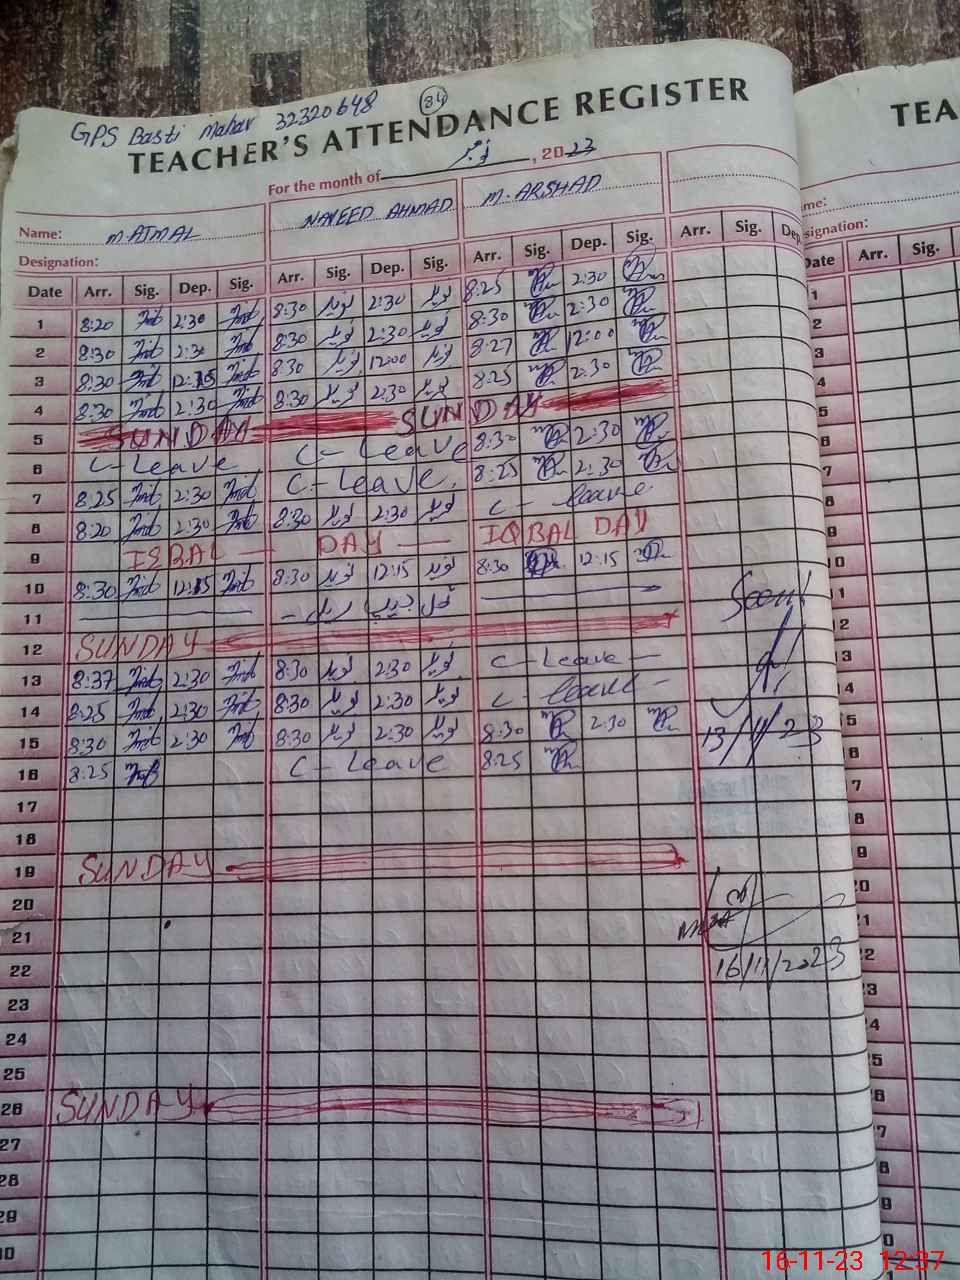 GPS Basti Mahar 32320648 (84)
TEACHER'S ATTENDANCE REGISTER TEA
For the month of نومبر, 2023
Name: M AJMAL NAVEED AHMAD M. ARSHAD me:
Designation: signation:
Date Arr. Sig. Dep. Sig. Arr. Sig. Dep. Sig. Arr. Sig. Dep. Sig. Arr. Sig. Dep. Date Arr. Sig.
1 8:20 2:30 8:30 نوید 2:30 نوید 8:25 2:30 1
2 8:30 2:30 8:30 نوید 2:30 نوید 8:30 2:30 2
3 8:30 12:15 8:30 نوید 12:00 نوید 8:27 12:00 3
4 8:30 2:30 8:30 نوید 2:30 نوید 8:25 2:30 4
5 SUNDAY SUNDAY 5
6 C-Leave C-Leave 8:30 2:30 6
7 8:25 2:30 C-Leave 8:25 2:30 7
8 8:20 2:30 8:30 نوید 2:30 نوید C-leave 8
9 IQBAL — DAY — IQBAL DAY 9
10 8:30 12:15 8:30 نوید 12:15 نوید 8:30 12:15 10
11 11
12 SUNDAY 12
13 8:37 2:30 8:30 نوید 2:30 نوید C-Leave - 3
14 8:25 2:30 8:30 نوید 2:30 نوید C-leave - 4
15 8:30 2:30 8:30 نوید 2:30 نوید 8:30 2:30 13/11/23 5
16 8:25 C-Leave 8:25 6
17 7
18 8
19 SUNDAY 9
20 20
21 21
22 16/11/2023 22
23 23
24 24
25 25
26 SUNDAY 26
27 7
28 8
29 9
30 0
16-11-23 12:37